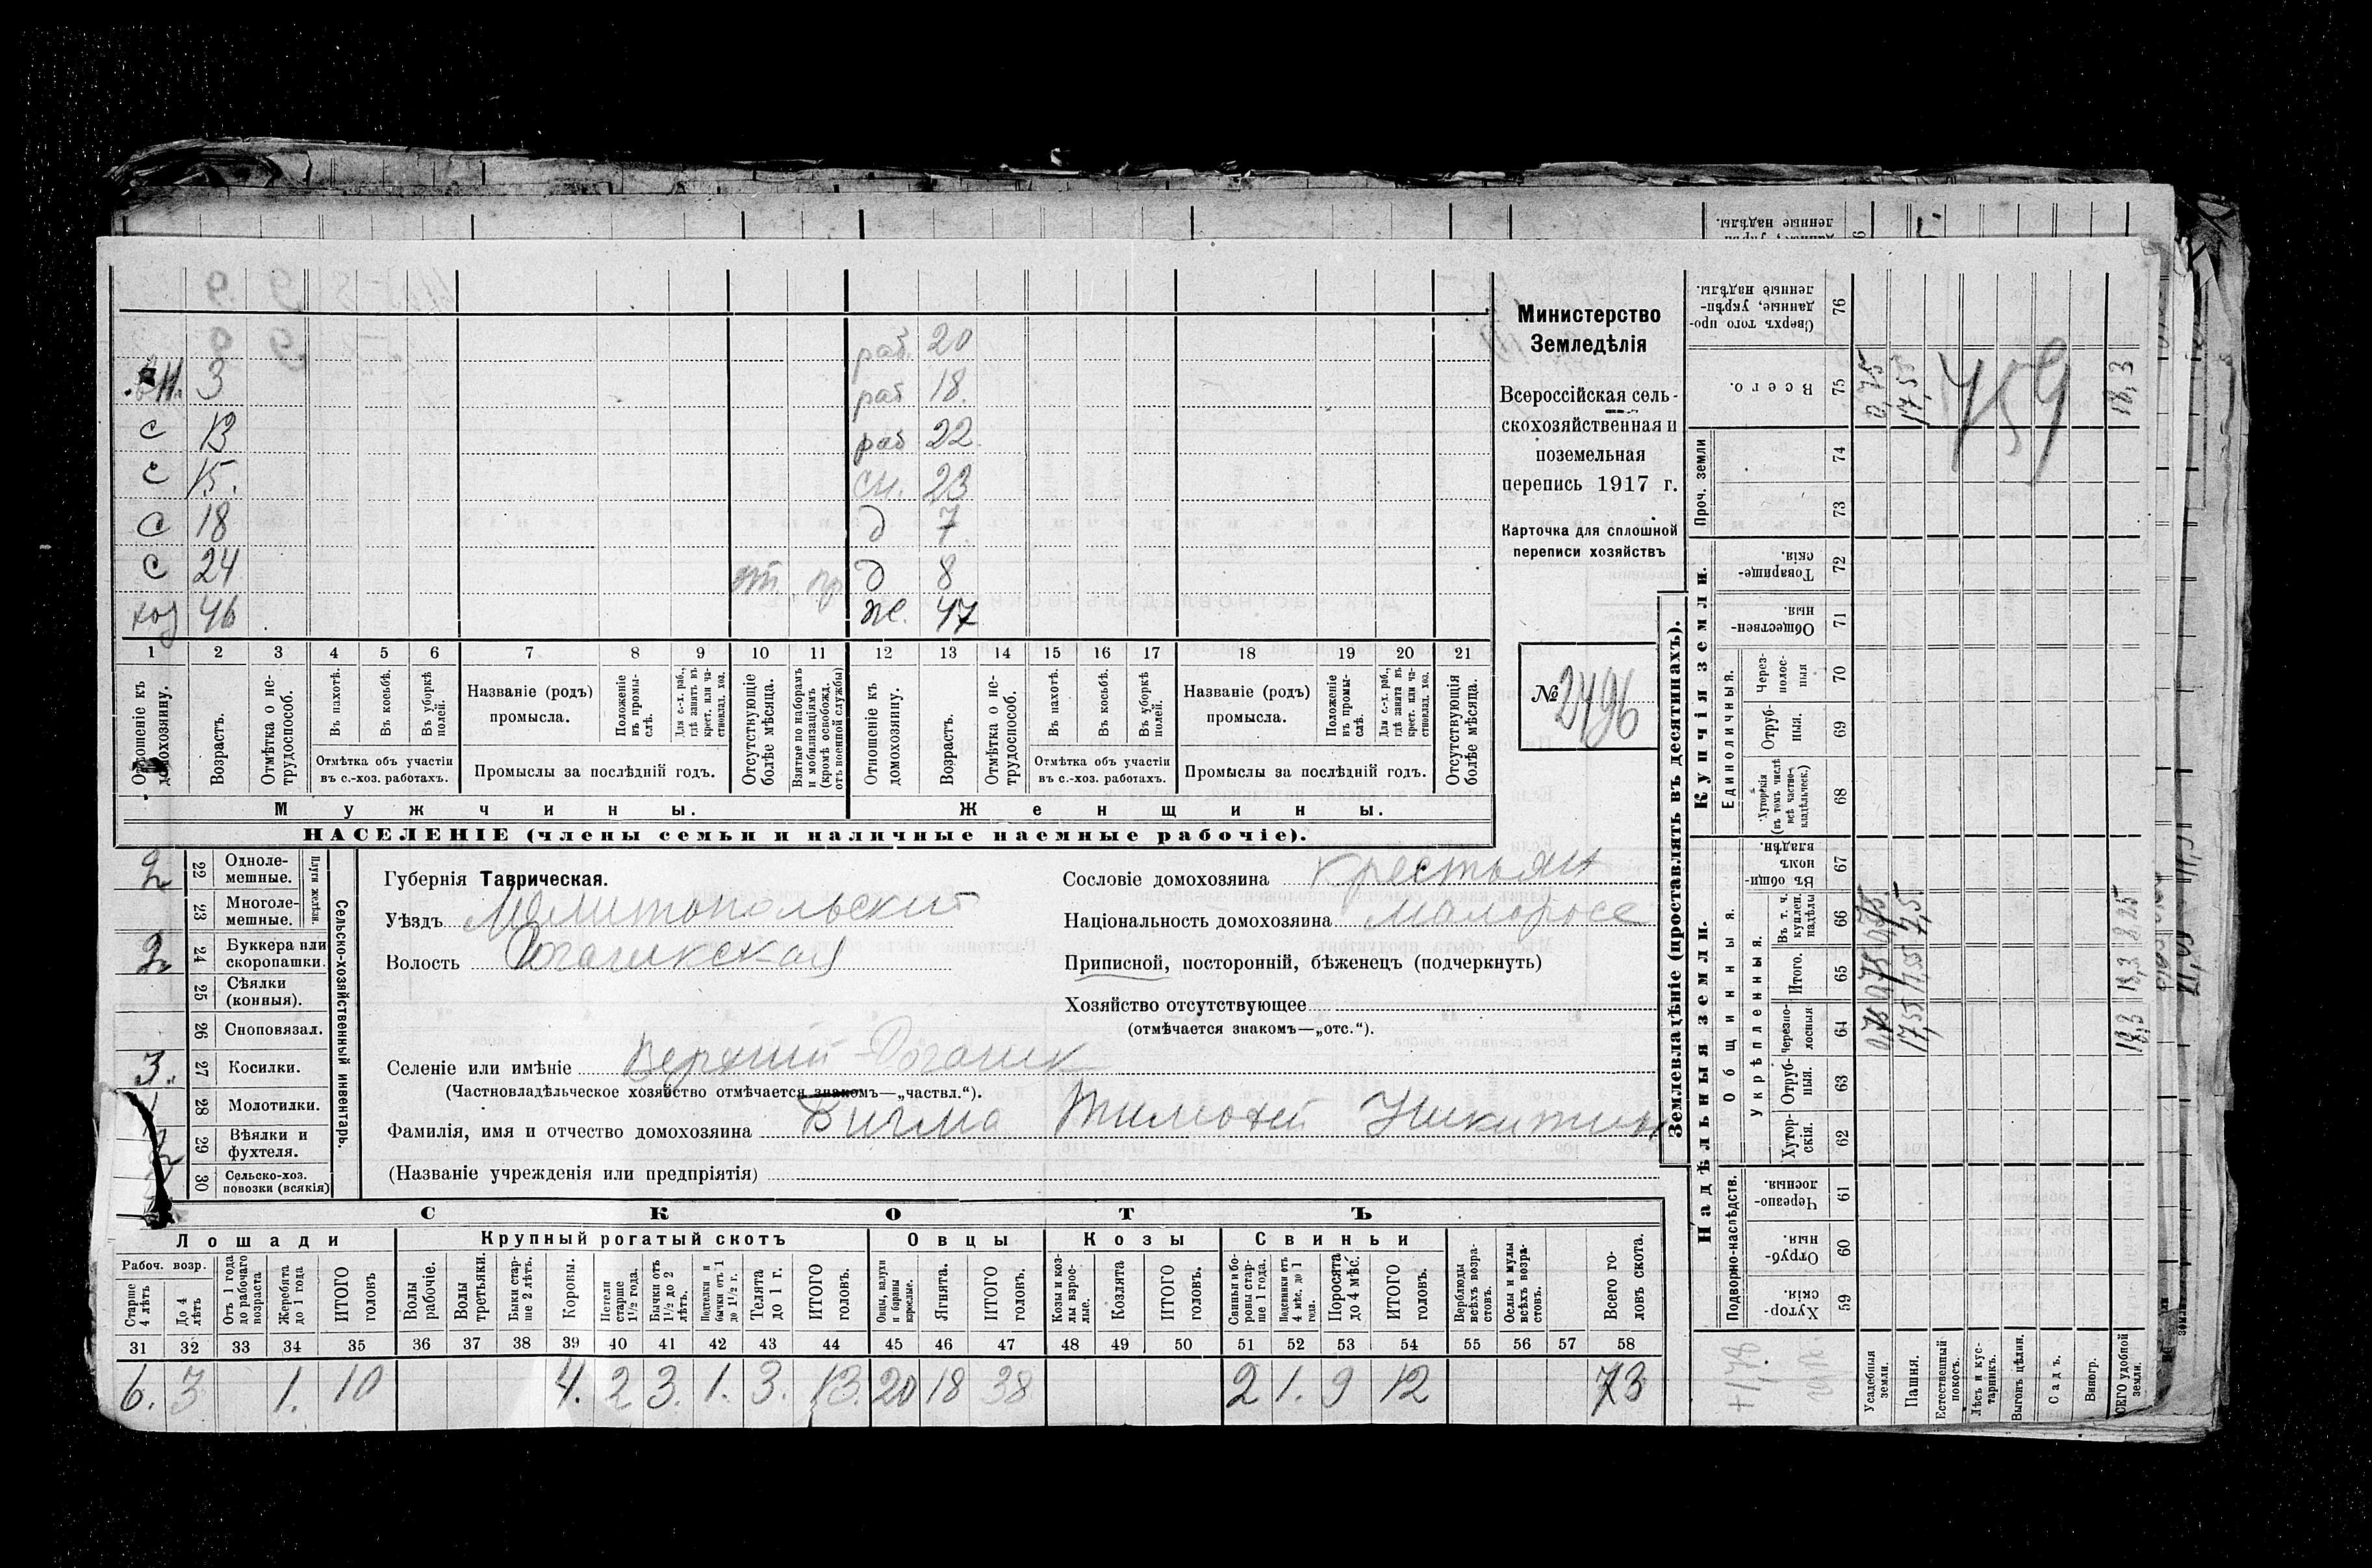 раб. 20
вн. 3 раб 18.
с 13 раб 22.
с 15. сн. 23
с 18 д 7.
с 24 д 8
хоз 46 ж. 47
1 2 3 4 5 6 7 8 9 10 11 12 13 14 15 16 17 18 19 20 21
Отношеніе къ домохозяину.
Возрастъ.
Отмѣтка о не-
трудоспособ.
Въ пахотѣ.
Въ косьбѣ.
Въ уборкѣ полей.
Отмѣтка объ участіи
въ с.-хоз. работахъ.
Названіе (родъ)
промысла.
Положеніе въ промы-
слѣ.
Для с.-х. раб., гдѣ занятъ въ крест. или ча-
стновлад. хоз.
Промыслы за послѣдній годъ.
Отсутствующіе
болѣе мѣсяца.
Взятые по наборамъ
и мобилизаціямъ
(кромѣ освобожд.
отъ военной службы)
Отношеніе къ
домохозяину.
Возрастъ.
Отмѣтка о не-
трудоспособ.
Въ пахотѣ.
Въ косьбѣ.
Въ уборкѣ полей.
Отмѣтка объ участіи
въ с.-хоз. работахъ.
Названіе (родъ)
промысла.
Положеніе въ промы-
слѣ.
Для с.-х. раб., гдѣ занята въ крест. или ча-
стновлад. хоз.
Промыслы за послѣдній годъ.
Отсутствующія
болѣе мѣсяца.
Мужчины. Женщины.
НАСЕЛЕНІЕ (члены семьи и наличные наемные рабочіе).
Министерство
Земледѣлія
Всероссійская сель-
скохозяйственная и
поземельная
перепись 1917 г.
Карточка для сплошной
переписи хозяйствъ
№ 2496
2 22 Одноле-
мешные.
23 Многоле-
мешные.
Плуги желѣзн.
2 24 Буккера или
скоропашки.
25 Сѣялки
(конныя).
26 Сноповязал.
3. 27 Косилки.
28 Молотилки.
29 Вѣялки и
фухтеля.
30 Сельско-хоз.
повозки (всякія)
Сельско-хозяйственный инвентарь.
Губернія Таврическая.
Уѣздъ Мелитопольский
Волость Рогачикская
Селеніе или имѣніе Верхний-Рогачик
(Частновладѣльческое хозяйство отмѣчается знакомъ—„частвл.“).
Фамилія, имя и отчество домохозяина Вигма Тимофей Никитин
(Названіе учрежденія или предпріятія)
Сословіе домохозяина крестьян
Національность домохозяина малоросс
Приписной, посторонній, бѣженецъ (подчеркнуть)
Хозяйство отсутствующее
(отмѣчается знакомъ—„отс.“).
СКОТЪ
Лошади Крупный рогатый скотъ Овцы Козы Свиньи
Рабоч. возр.
Старше
4 лѣтъ
До 4
лѣтъ
Отъ 1 года
до рабочаго
возраста
Жеребята
до 1 года
ИТОГО
головъ
Волы
рабочіе.
Волы
третьяки.
Быки стар-
ше 2 лѣтъ.
Коровы.
Нетели
старше
1½ года.
Бычки отъ
1½ до 2
лѣтъ.
Подтелки и
бычки отъ 1
до 1½ г.
Телята
до 1 г.
ИТОГО
головъ.
Овцы, валухи
и бараны
взрослые.
Ягнята.
ИТОГО
головъ.
Козы и коз-
лы взрос-
лые.
Козлята
ИТОГО
головъ.
Свиньи и бо-
ровы стар-
ше 1 года.
Подсвинки отъ
4 мѣс. до 1
года.
Поросята
до 4 мѣс.
ИТОГО
головъ.
Верблюды
всѣхъ возра-
стовъ.
Ослы и мулы
всѣхъ возра-
стовъ.
Всего го-
ловъ скота.
31 32 33 34 35 36 37 38 39 40 41 42 43 44 45 46 47 48 49 50 51 52 53 54 55 56 57 58
6. 3 1. 10 4. 2 3. 1. 3. 13. 20 18 38 2 1. 9 12 73
Землевладѣніе (проставлять въ десятинахъ).
Надѣльныя земли. Купчія земли.
Подворно-наслѣдств. Общинныя. Единоличныя. Проч. земли
Укрѣпленныя.
Хутор-
скія. 59
Отруб-
ныя. 60
Черезпо-
лосныя. 61
Хутор-
скія. 62
Отруб-
ныя. 63
Черезпо-
лосныя 64
Итого. 65
Въ т. ч.
куплен.
надѣлы 66
Въ общи-
номъ
владѣн. 67
Хуторскія
(въ томъ числѣ
всѣ частно-
владѣльческ.) 68
Отруб-
ныя. 69
Через-
полос-
ныя 70
Обществен-
ныя. 71
Товарище-
скія. 72
73
74
Всего. 75
Сверхъ того про-
данные, укрѣп-
ленные надѣлы. 76
Усадебныя
земли. 0,75 0,75 0,75 0,75
Пашня. 17,55 17,55 7,5 17,55
Естественный
покосъ.
Лѣсъ и кус-
тарникъ.
Выгонъ цѣлин.
Садъ.
Виногр.
ВСЕГО удобной
земли. 18,3 18,3 8,25 18,3
759